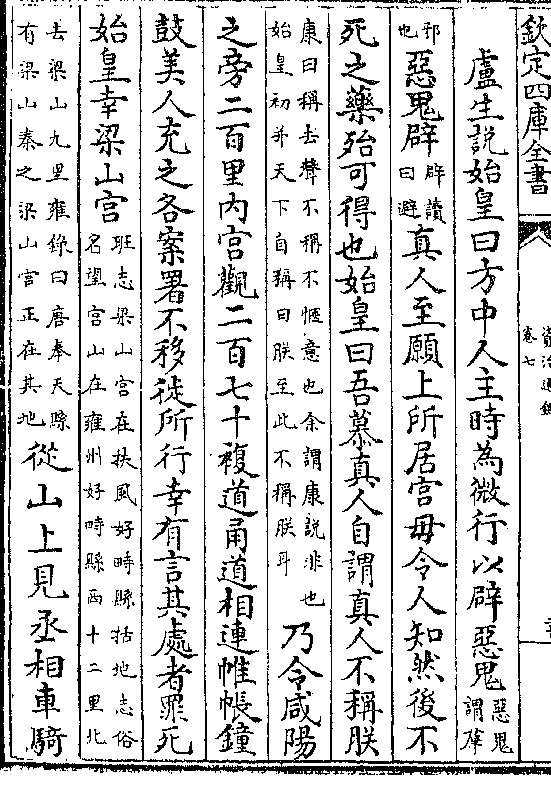 欽定四庫全書
資治通鑑
卷七
盧生說始皇曰方中人主時為微行以辟惡鬼惡鬼謂䧹
邪也惡鬼辟辟讀曰避真人至願上所居宮毋令人知然後不
死之藥殆可得也始皇曰吾慕真人自謂真人不稱朕
康曰稱去聲不稱不愜意也余謂康說非也始皇初并天下自稱曰朕至此不稱朕耳乃令咸陽
之旁二百里内宮觀二百七十複道甬道相連帷帳鐘
鼓美人充之各案署不移徙所行幸有言其處者罪死
始皇幸梁山宮班志梁山宮在扶風好畤縣括地志俗名望宮山在雍州好畤縣西十二里北
去梁山九里雍錄曰唐奉天縣有梁山秦之梁山宮正在其地從山上見丞相車騎